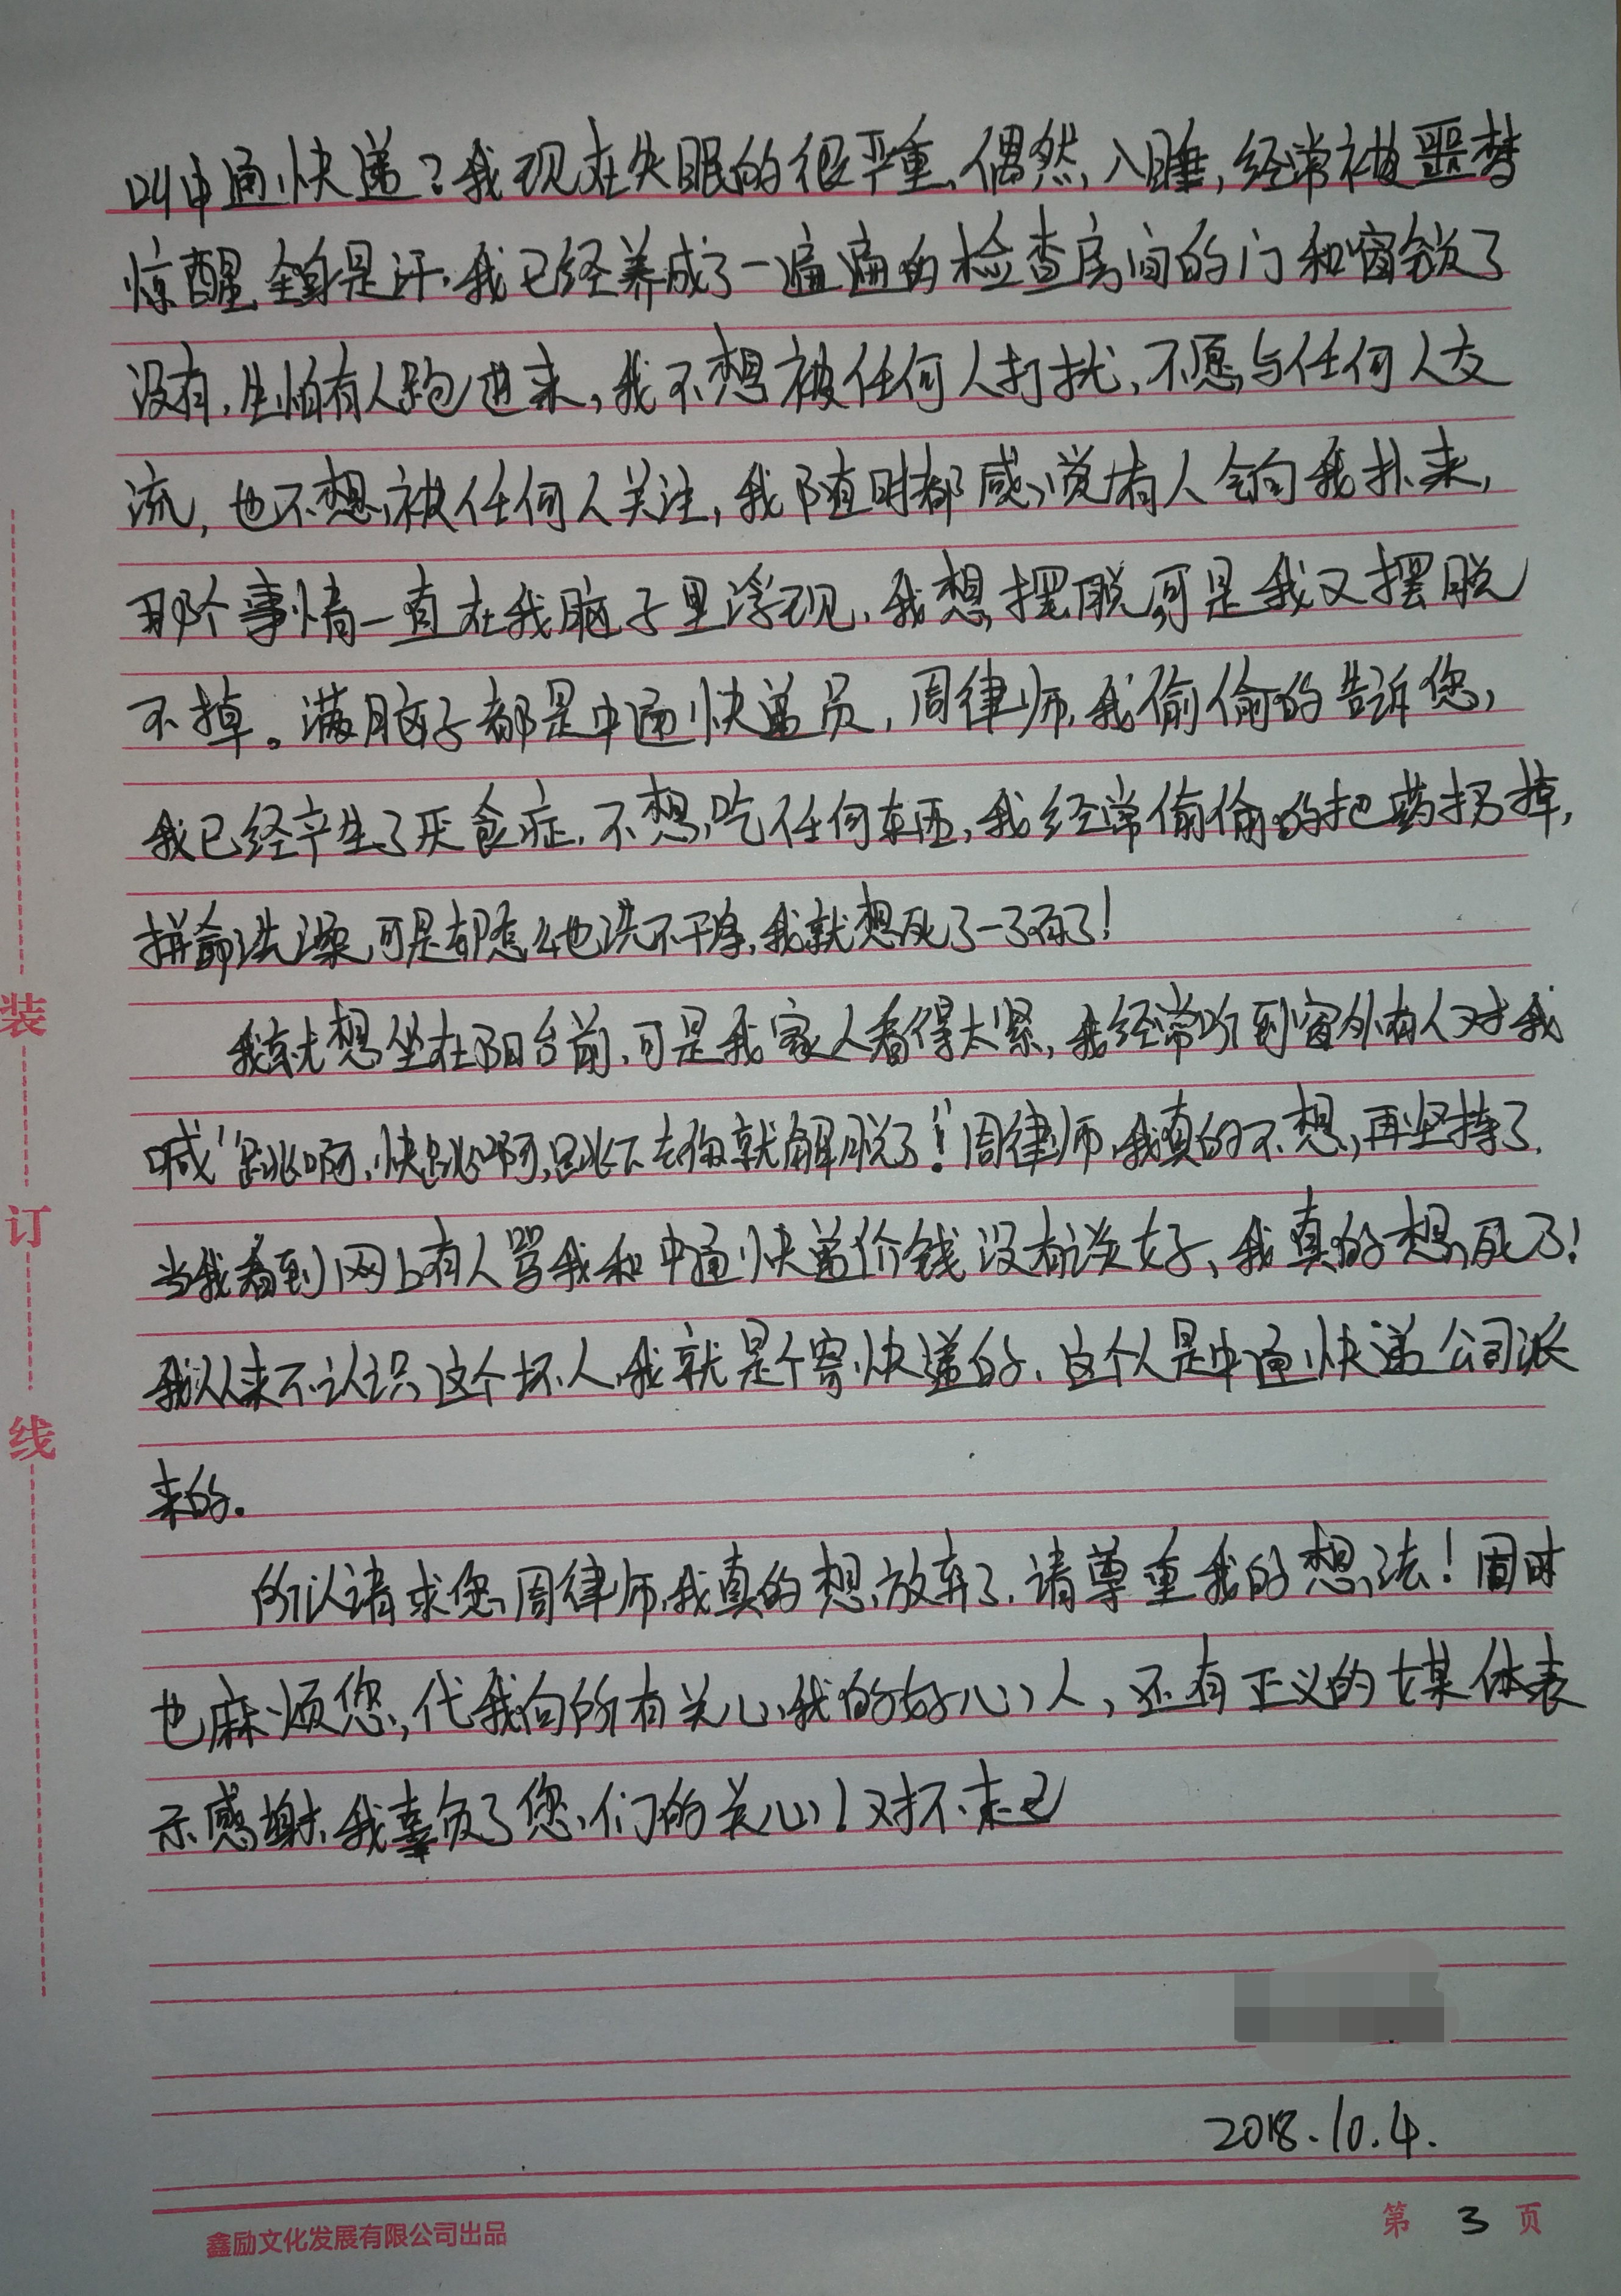 叫申通快递？我现在失眠的很严重、偶然入睡，经常被噩梦
惊醒、全身是汗.我已经养成了一遍遍的检查房间的门和窗锁了
没有，生怕有人跑进来，我不想被任何人打扰，不愿与任何人交
流，也不想被任何人关注，我随时都感觉有人会向我扑来，
那个事情一直在我脑子里浮现、我想摆脱，可是我又摆脱
不掉。满脑子都是中通快递员，周律师，我偷偷的告诉您，
我已经产生了厌食症，不想吃任何东西，我经常偷偷的把药扔掉，
拼命洗澡，可是都怎么也洗不干净，我就想死了一了百了！
我就想坐在阳台前，可是我家人看得太紧，我经常听到窗外有人对我
喊"跳啊，快跳啊，跳下去你就解脱了！"周律师，我真的不想再坚持了.
当我看到网上有人骂我和中通快递价钱没有谈好、我真的想死了！
我从来不认识这个坏人，我就是个寄快递的、这个人是中通快递公司派
来的。
所以请求您，周律师，我真的想放弃了，请尊重我的想法！同时
也麻烦您，代我向所有关心我的好心人，还有正义的媒体表
示感谢，我辜负了您们的关心！对不起
2018.10.4.
装
订
线
鑫励文化发展有限公司出品
第 3 页